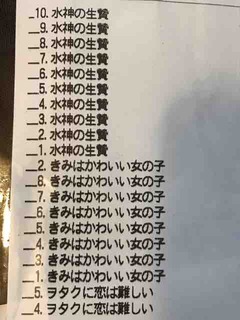 _10. 水神の生贄
_9. 水神の生贄
_8. 水神の生贄
_7. 水神の生贄
_6. 水神の生贄
_5. 水神の生贄
_4. 水神の生贄
_3. 水神の生贄
_2. 水神の生贄
_1. 水神の生贄
_2. きみはかわいい女の子
_8. きみはかわいい女の子
_7. きみはかわいい女の子
_6. きみはかわいい女の子
_5. きみはかわいい女の子
_4. きみはかわいい女の子
_3. きみはかわいい女の子
_1. きみはかわいい女の子
_5. ヲタクに恋は難しい
_4. ヲタクに恋は難しい